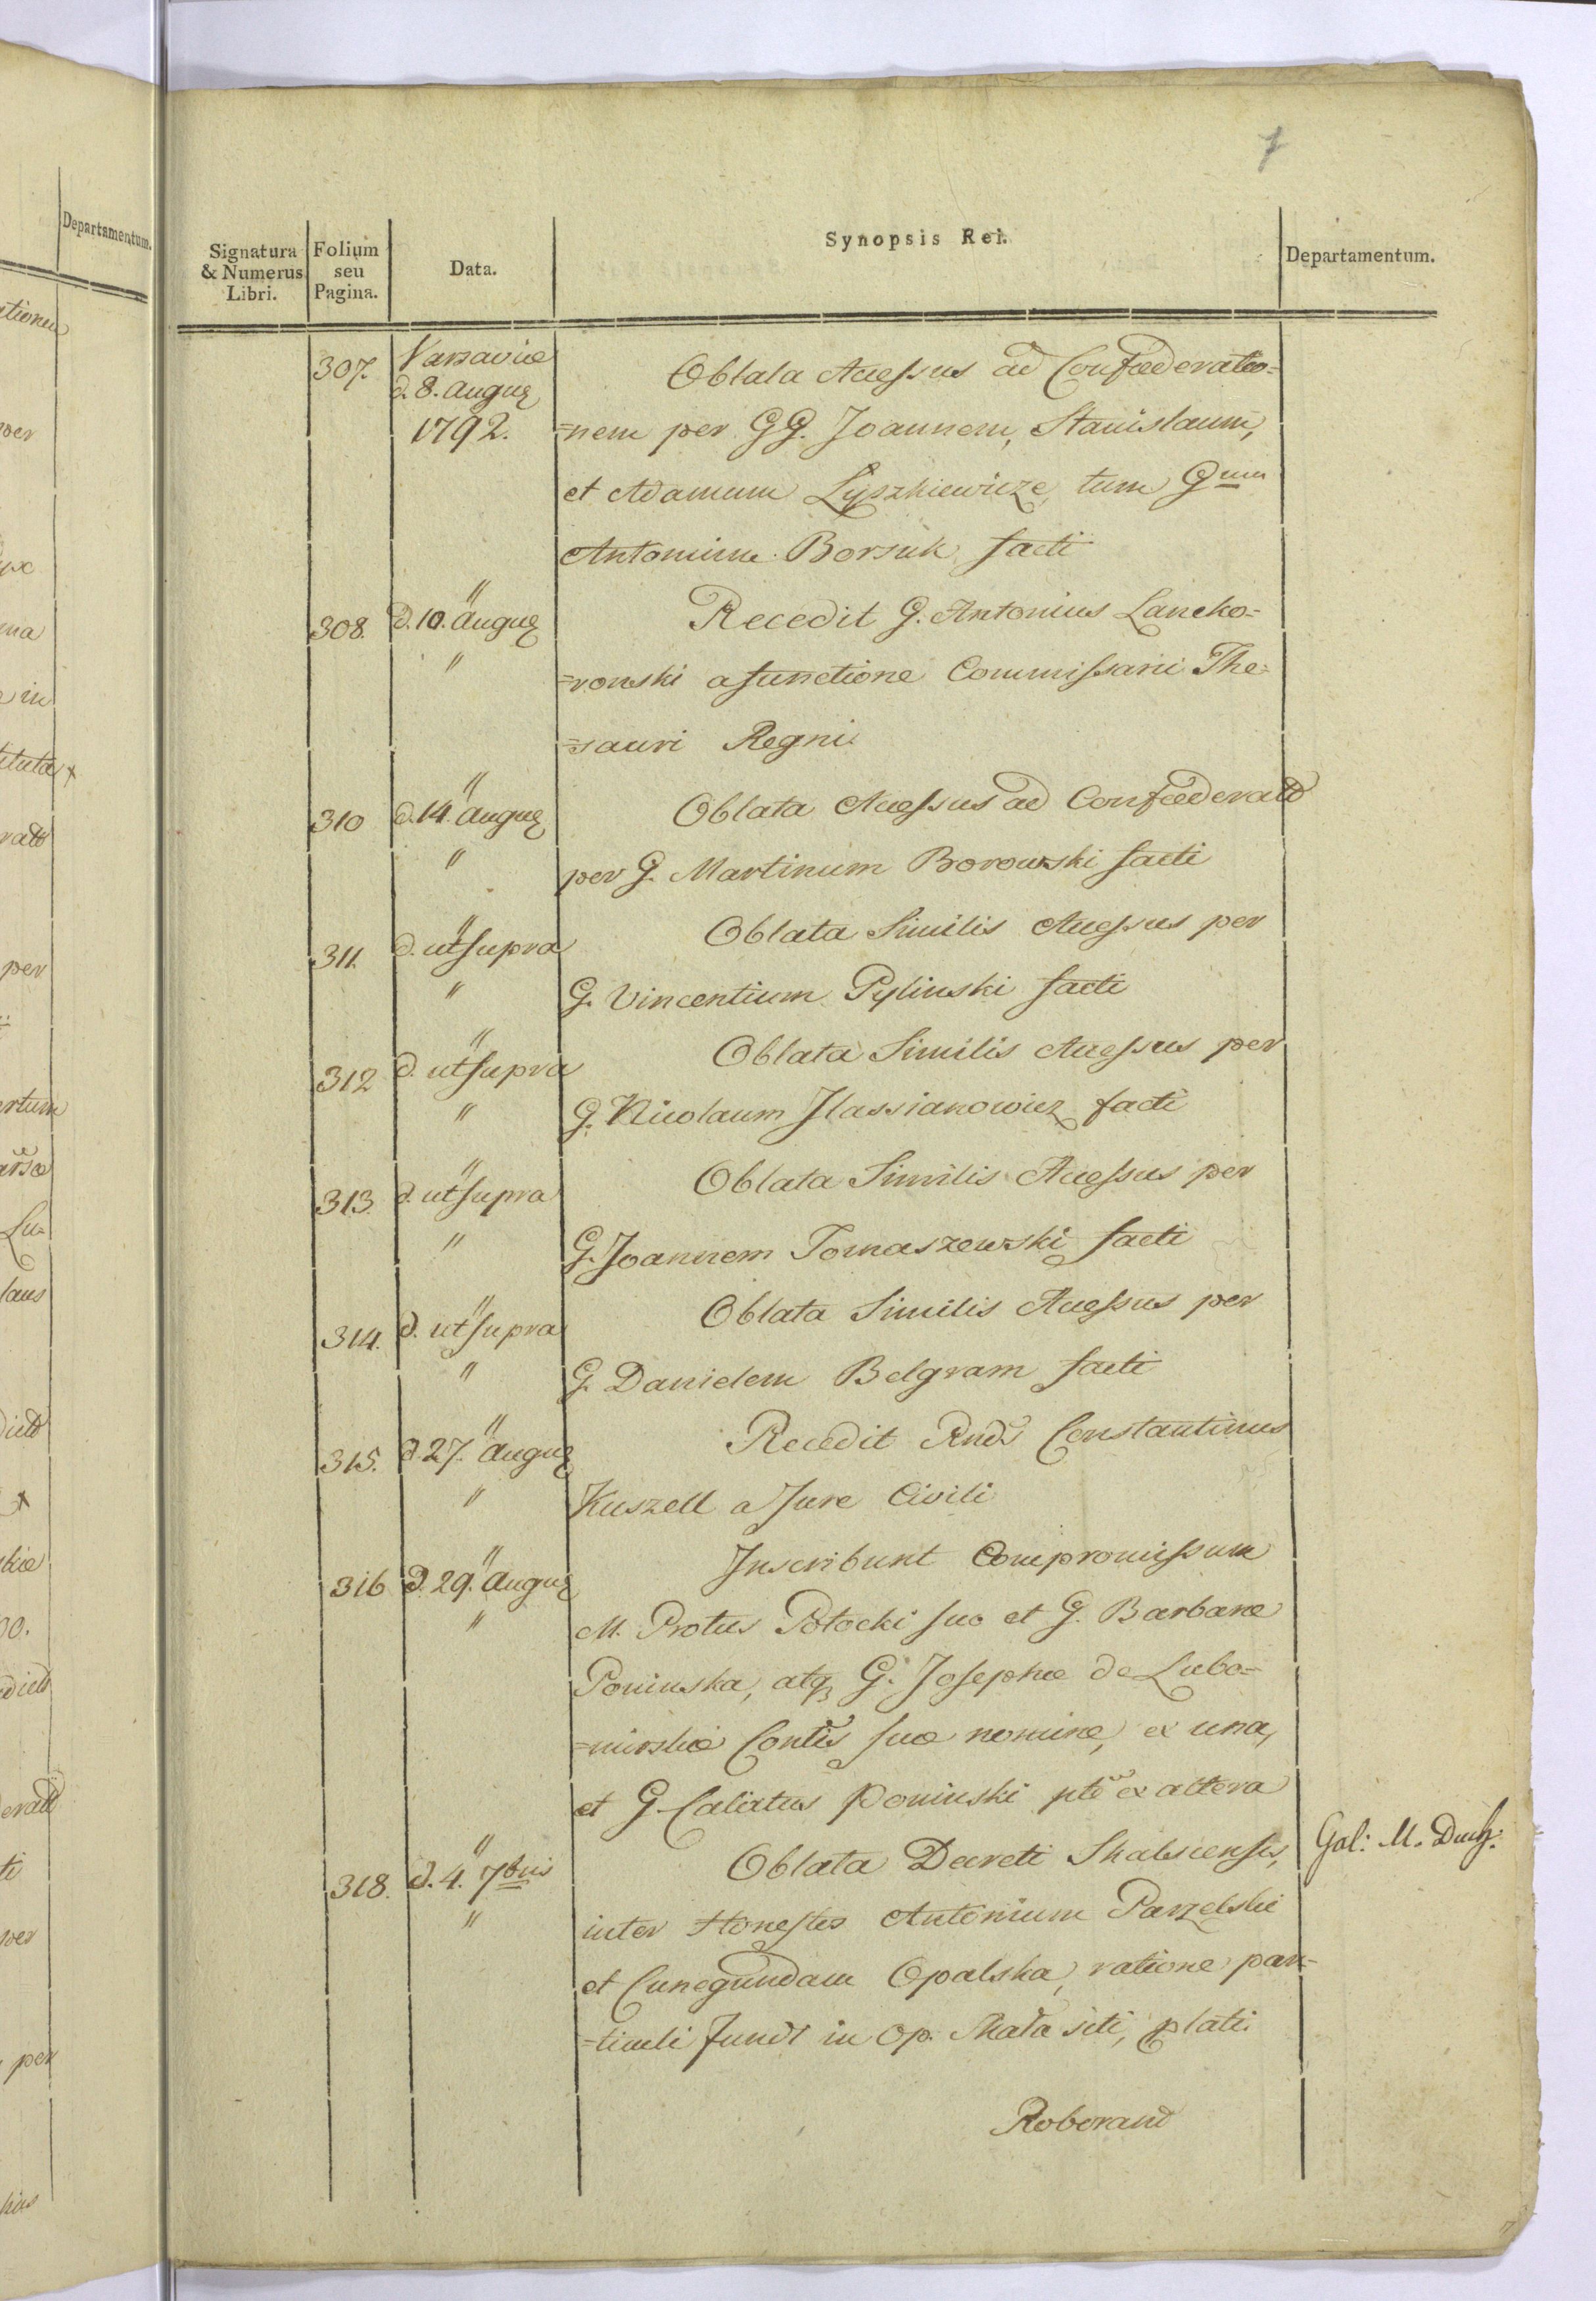 7
Signatura & Numerus Libri.
Folium seu Pagina.
Data.
Synopsis Rei.
Departamentum.
307. Varsaviæ d. 8. augus 1792. Oblata Accessus ad Confæderatio=
=nem per GG. Joannem, Stanislaum,
et Adamum Lyszkiewicze, tum Gnum
Antonium Borsuk facti
308. " d. 10. augus " Recedit G. Antonius Lancko=
=ronski a functione Commissarii The=
=sauri Regni
310 " d. 14. augus " Oblata Accessus ad Confæderatō
per G. Martinum Borowski facti
311. " d. ut supra " Oblata Similis Accessus per
G. Vincentium Pylinski facti
312 " d. ut supra " Oblata Similis Accessus per
G. Nicolaum Jlassianowicz facti
313. " d. ut supra " Oblata Similis Accessus per
G. Joannem Tomaszewski facti
314. " d. ut supra " Oblata Similis Accessus per
G. Danielem Belgram facti
315. " d. 27. augus " Recedit Rnds Constantinus
Kuszell a Jure Civili
316 " d. 29. augus " Inscribunt Compromissum
M. Protus Potocki suo et G. Barbaræ
Poninska, atq G. Josephæ de Lubo=
=mirskie Contis suæ nomine, ex una,
et G. Calixtus Poninski pte ex altera
318. " d. 4. 7bris " Oblata Decreti Skalsiensis, Gal: M. Duch:
inter Honestos Antonium Parzelski
et Cunegundam Opalska, ratione par=
=ticuli Fundi in Op. Skała siti, plati
Roborand